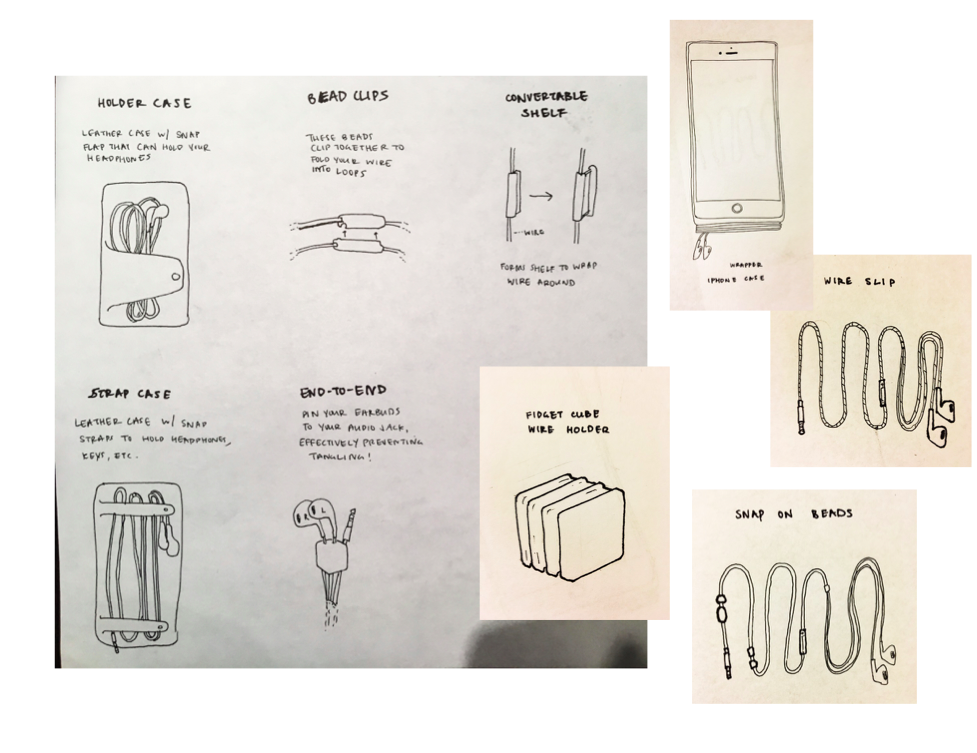 HOLDER CASE
LEATHER CASE W/ SNAP
FLAP THAT CAN HOLD YOUR
HEADPHONES
BEAD CLIPS
THESE BEADS
CLIP TOGETHER TO
FOLD YOUR WIRE
INTO LOOPS
CONVERTABLE
SHELF
WIRE
FORMS SHELF TO WRAP
WIRE AROUND
WRAPPER
IPHONE CASE
WIRE SLIP
STRAP CASE
LEATHER CASE W/ SNAP
STRAP TO HOLD HEADPHONES,
KEYS, ETC.
END-TO-END
PIN YOUR EARBUDS
TO YOUR AUDIO JACK,
EFFECTIVELY PREVENTING
TANGLING!
R L
FIDGET CUBE
WIRE HOLDER
SNAP ON BEADS